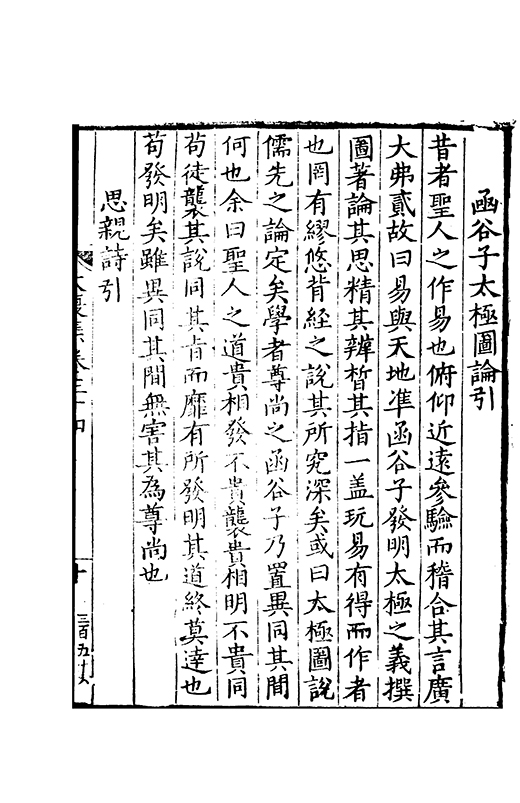 函谷子太極圖論引
昔者聖人之作易也俯仰近遠參驗而稽合其言廣
大弗貳故曰易與天地準函谷子發明太極之義撰
圖著論其思精其辨晳其指一盖玩易有得而作者
也罔有繆悠背經之說其所究深矣或曰太極圖說
儒先之論定矣學者尊尚之函谷子乃置異同其間
何也余曰聖人之道貴相發不貴襲貴相明不貴同
茍徒襲其說同其㫖而靡有所發明其道終莫達也
茍發明矣雖異同其間無害其為尊尚也
思親詩引
卷三十四
十
三百五廿